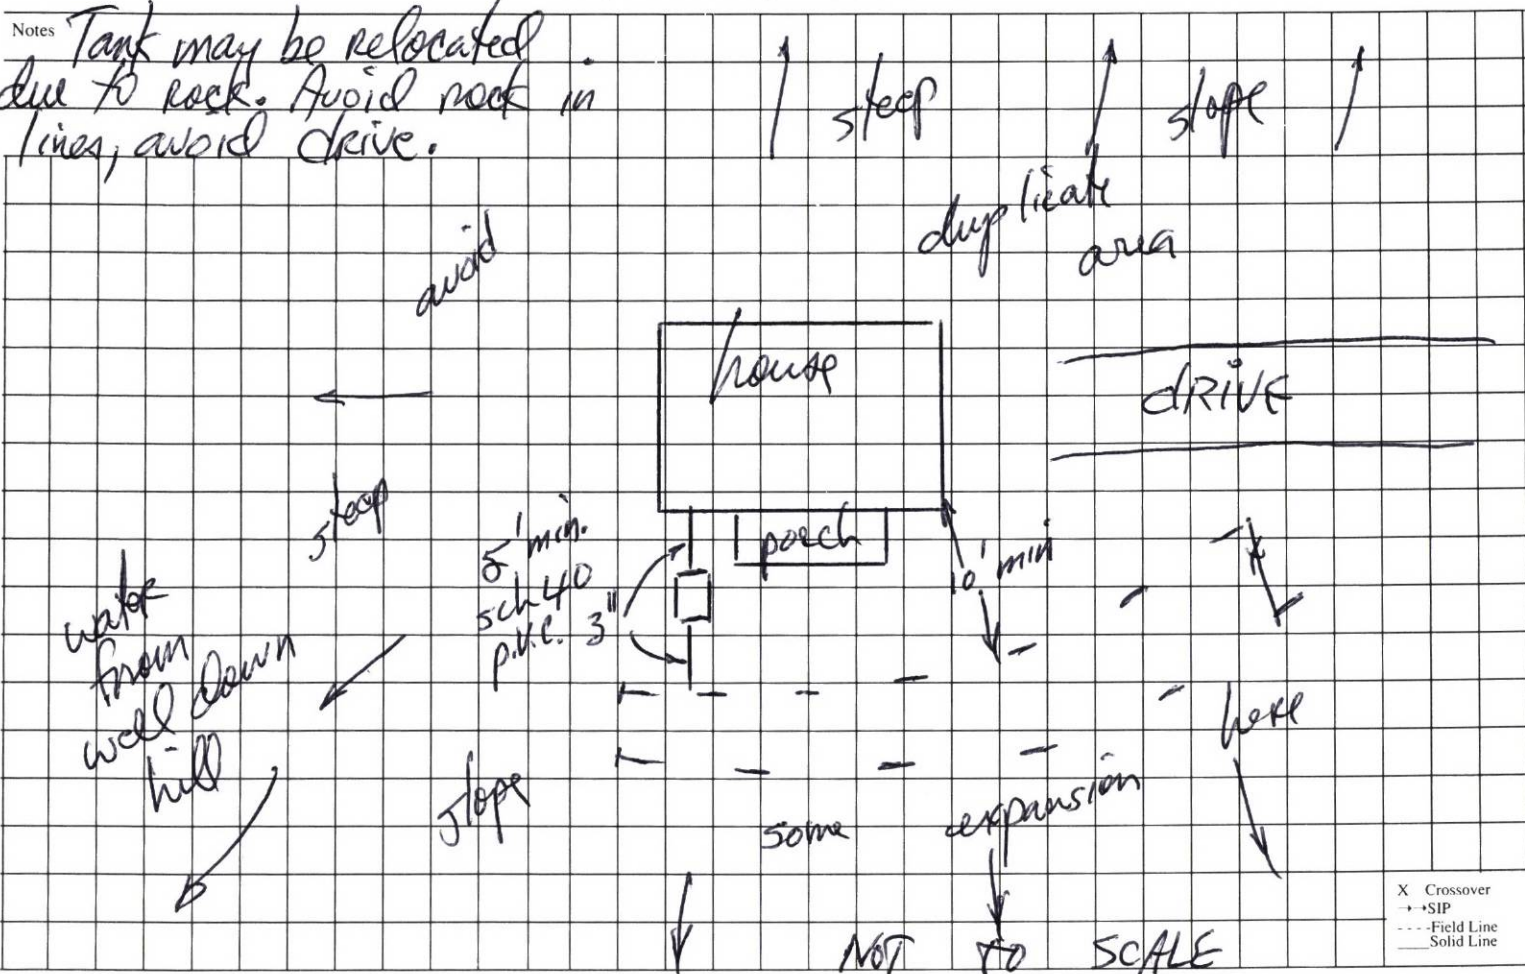 Notes Tank may be relocated
due to rock. Avoid rock in
lines, avoid drive.
steep slope
duplicate
area
avoid
house
DRIVE
steep
5' min.
sch 40
p.v.c. 3"
porch
10' min
water
from
well down
hill
slope
here
some expansion
NOT TO SCALE
X Crossover
SIP
Field Line
Solid Line